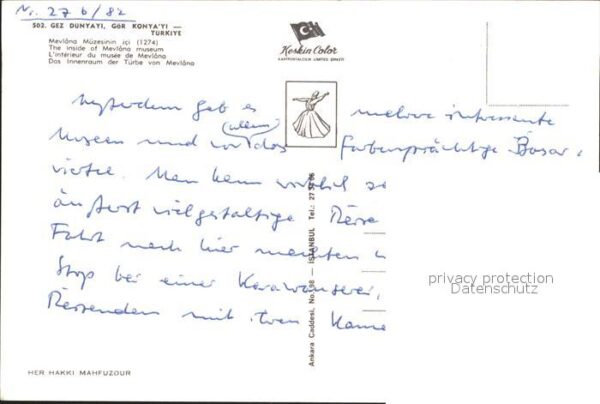 Nr. 276/82
502. GEZ DÜNYAYI, GÖR KONYA'YI —
TÜRKİYE
Mevlâna Müzesinin içi (1274)
The inside of Mevlâna museum
L'intérieur du musee de Mevlâna
Das Innenraum der Türbe von Mevlâna
Keskin Color
KARTPOSTALCILIK LIMITED ŞİRKETİ
Außerdem gab es mehrere interessante
Museen und vor allem das farbenprächtige Basar-
viertel. Man kann wirklich
äußerst vielgestaltige Reise
Fahrt nach hier machten
Stop bei einer Karawanserei,
Reisenden mit ihren Kame
Ankara Caddesi, No. 98 — İSTANBUL Tel.:
privacy protection
Datenschutz
HER HAKKI MAHFUZDUR